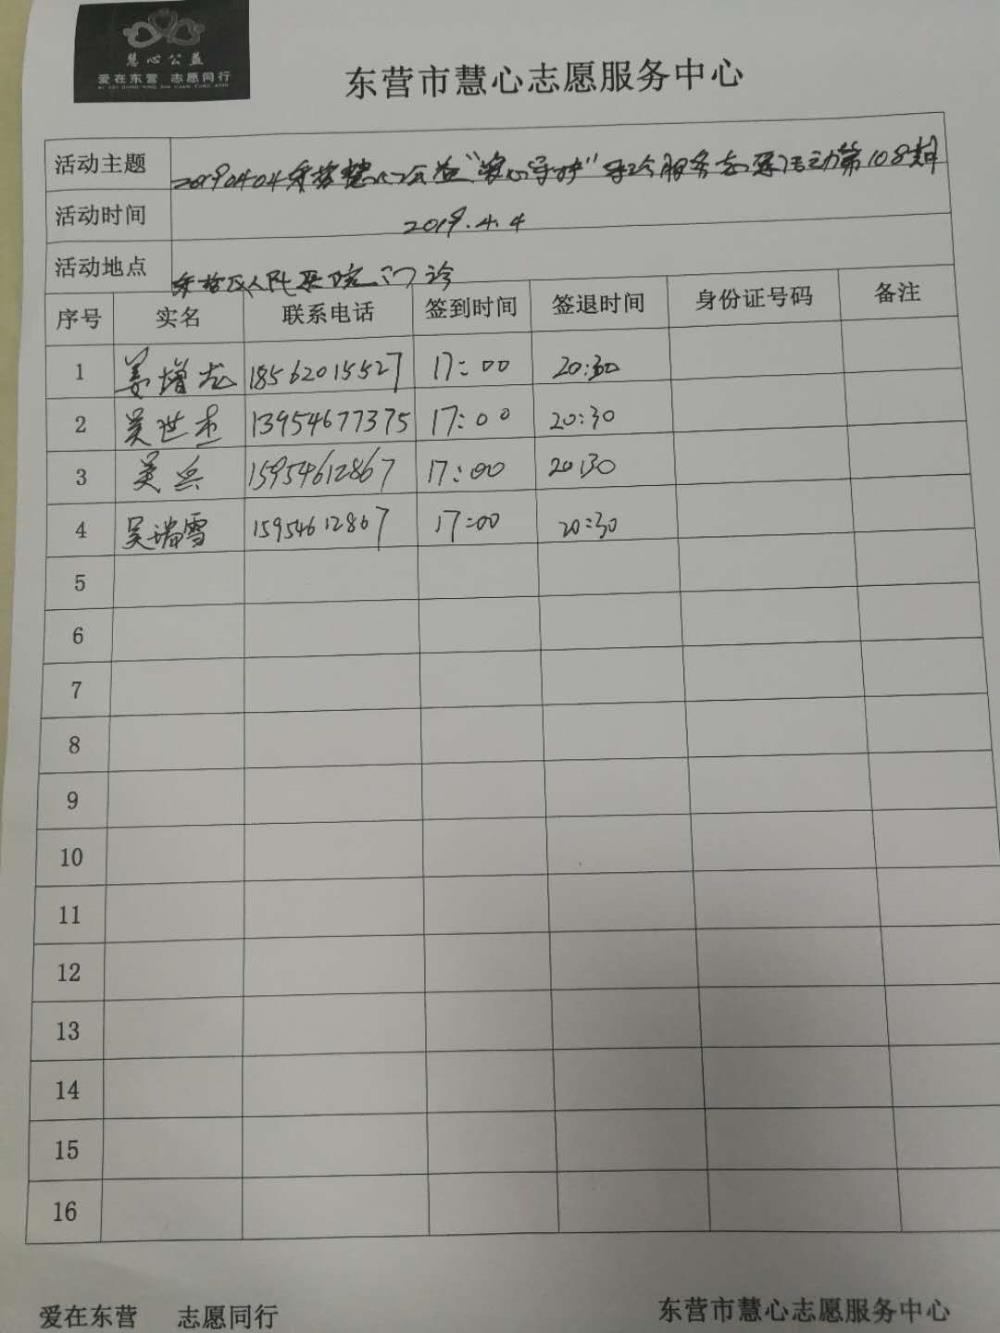 慧心公益
爱在东营 志愿同行
东营市慧心志愿服务中心
活动主题 20190404东营慧心公益“安心守护”导医服务志愿活动第108期
活动时间 2019.4.4
活动地点 东营区人民医院门诊
序号 实名 联系电话 签到时间 签退时间 身份证号码 备注
1 姜增龙 18562015527 17:00 20:30
2 吴世杰 13954677375 17:00 20:30
3 吴兵 15954612867 17:00 20:30
4 吴瑞雪 15954612867 17:00 20:30
5
6
7
8
9
10
11
12
13
14
15
16
爱在东营 志愿同行 东营市慧心志愿服务中心